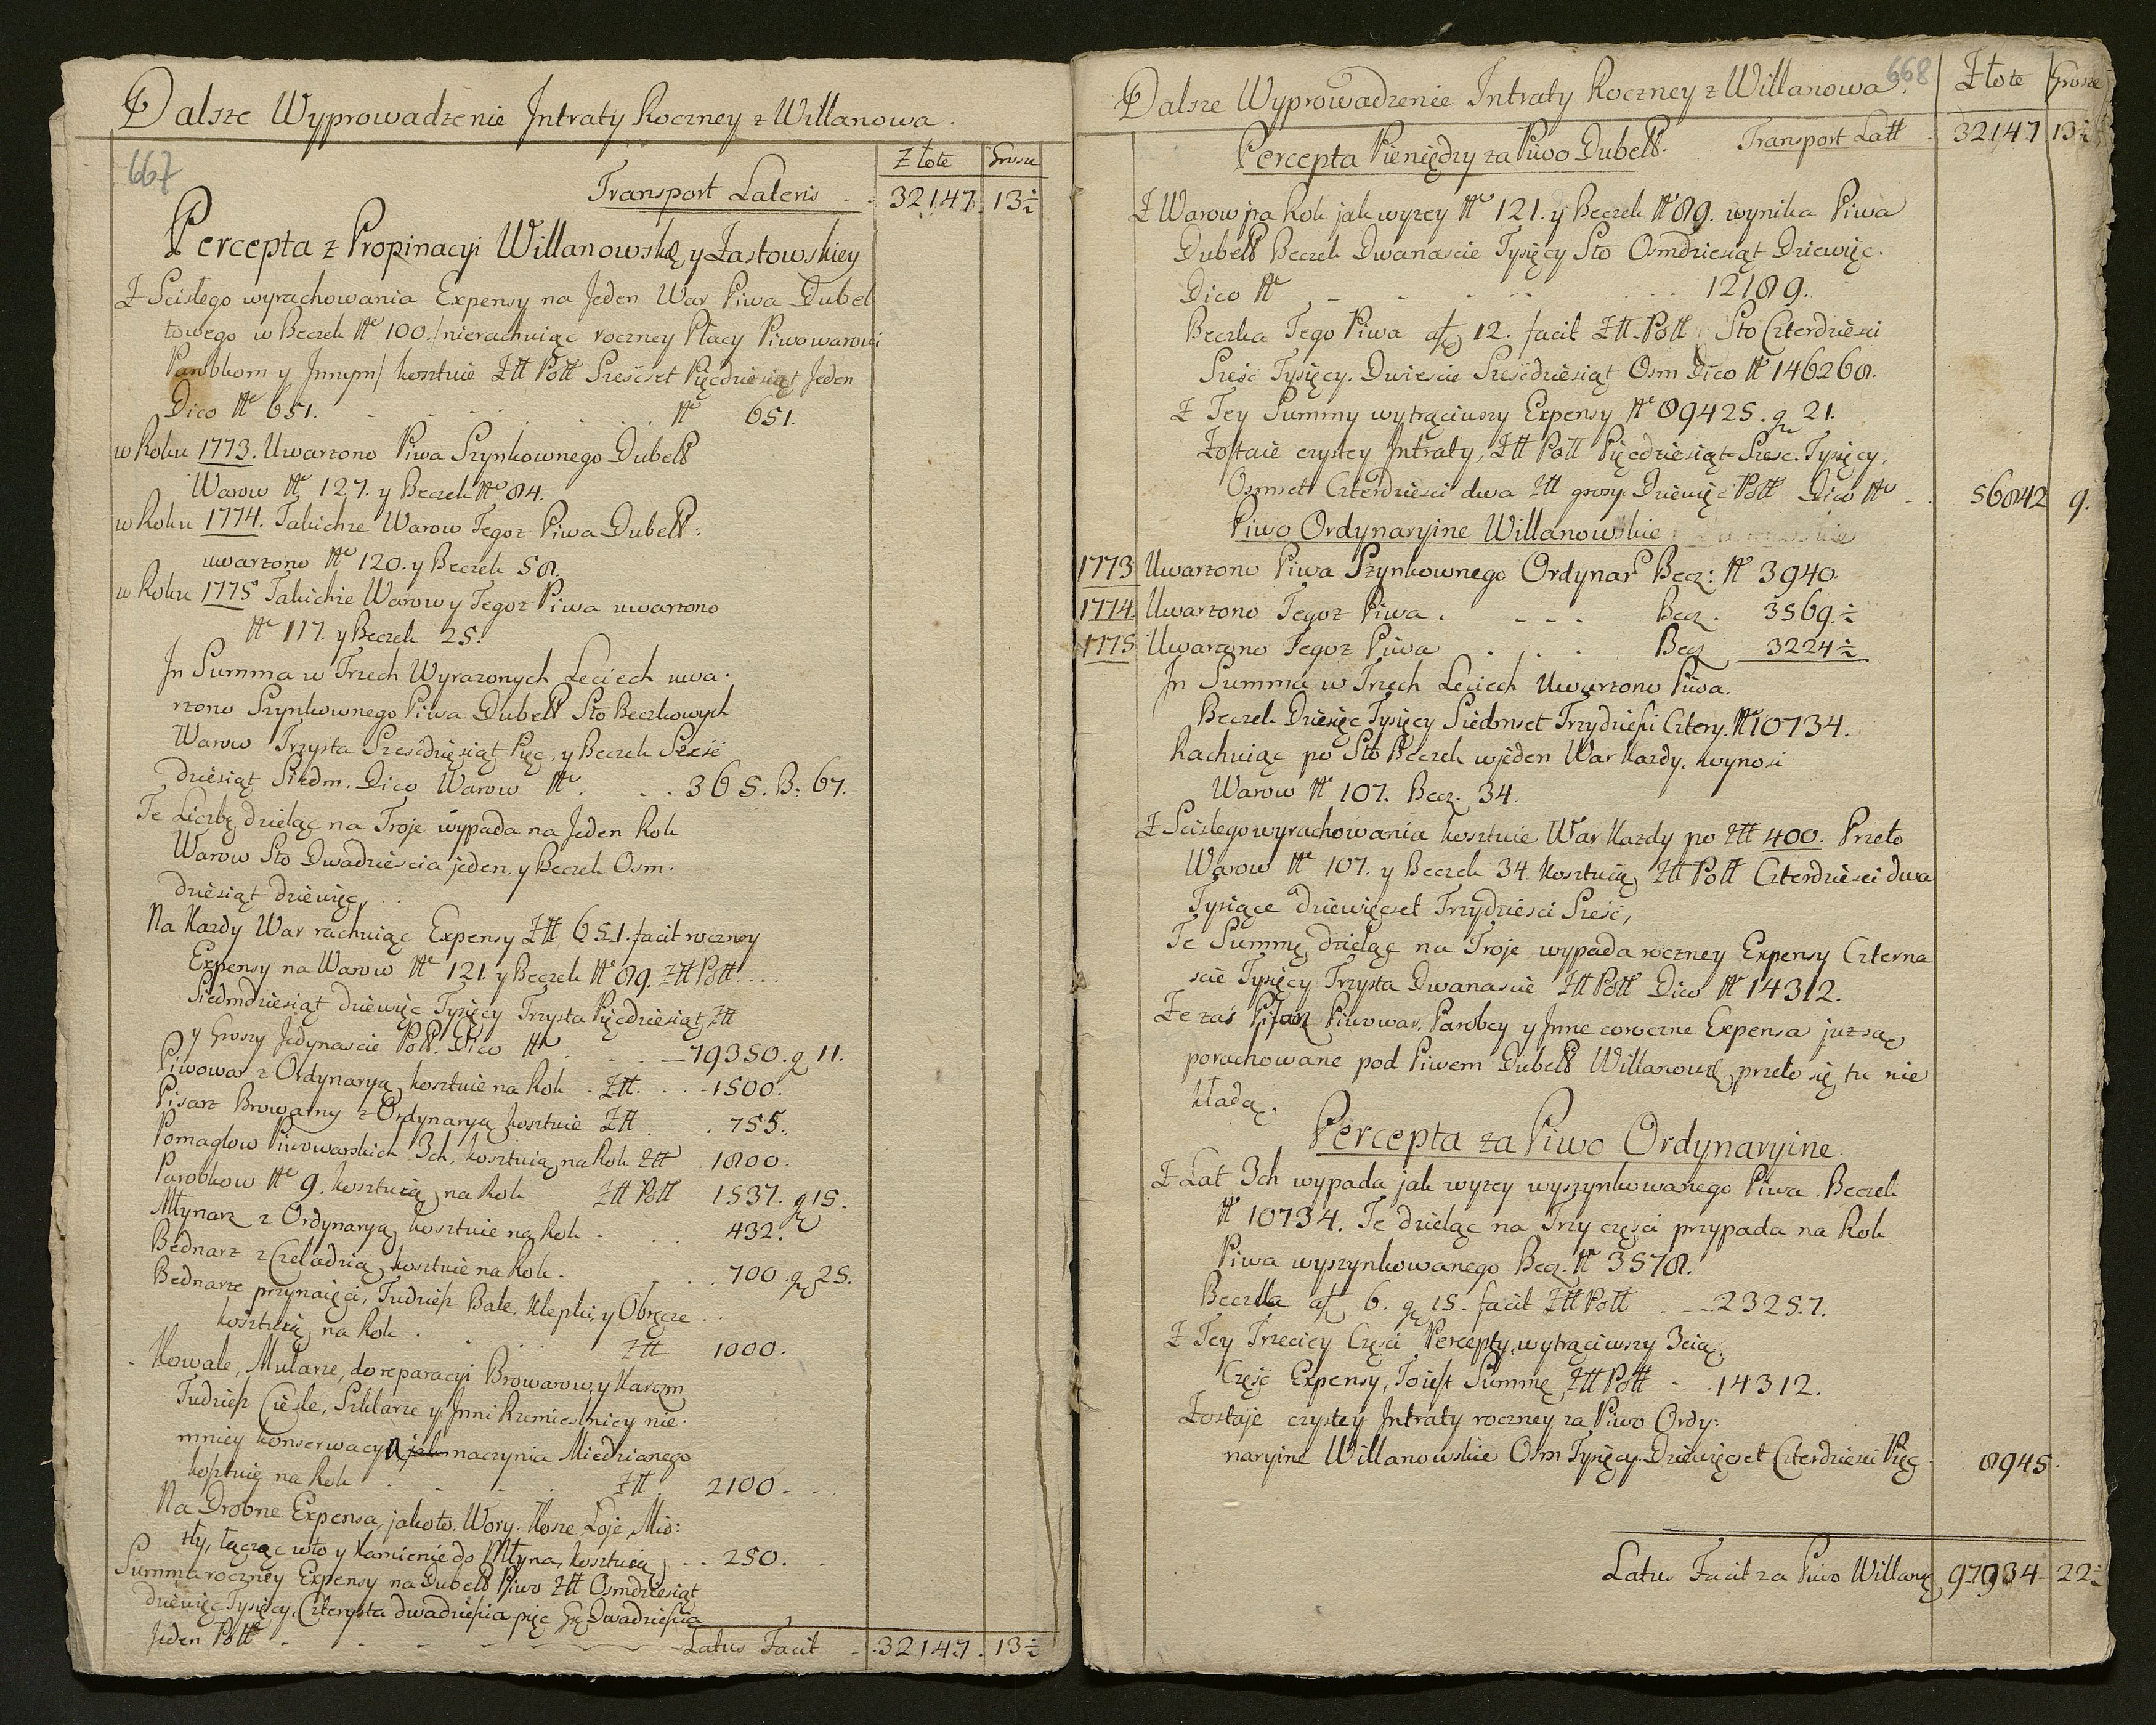 Dalsze Wyprowadzenie Jntraty Roczney z Willanowa.
667
Złote Grosze
Transport Lateris . . 32147. 13½
Percepta z Propinacyi Willanowskiey y Zastowskiey
Z Scisłego wyrachowania Expensy na Jeden War Piwa Dubel
towego w Beczek No 100. /nierachuiąc roczney Płacy Piwowarowi
Parobkom y Jnnym/ kosztuie Ztt Poll Szescset Pięcdziesiąt Jeden
Dico No 651. . . . . . No 651.
w Roku 1773. Uwarzono Piwa Szynkownego Dubelt
Warow No 127. y Beczek No 84.
w Roku 1774. Takichze Warow Tegoz Piwa Dubelt:
uwarzono No 120. y Beczek 58.
w Roku 1775 Takichze Warow y Tegoz Piwa uwarzono
No 117. y Beczek 25.
Jn Summa w Trzech Wyrazonych Leciech uwa.
rzono Szynkownego Piwa Dubelt Sto Beczkowych
Warow Trzysta Szescdziesiąt Pięc, y Beczek Szesc
dziesiąt Siedm. Dico Warow No . . . 365. B: 67.
Te Liczbę dzieląc na Troje wypada na Jeden Rok
Warow Sto Dwadziescia jeden y Beczek Osm.
dziesiąt dziewięc, . .
Na Kazdy War rachuiąc Expensy Ztt 651. facit roczney
Expensy na Warow No 121. y Beczek No 89. Ztt Poll . . . .
Siedmdziesiąt dziewięc Tysięcy Trzysta Pięcdziesiąt Ztt
y Groszy Jedynascie Poll. Dico No . . . — 79350. g 11.
Piwowar z Ordynaryą kosztuie na Rok . Ztt. . . -1500.
Pisarz Browarny z Ordynaryą kosztuie Ztt . . 755.
Pomagłow Piwowarskich 3ch, kosztuią na Rok Ztt . 1800.
Parobkow No 9. kosztuią na Rok Ztt Poll 1537. g 15.
Młynarz z Ordynaryą kosztuie na Rok . . . 432.
Bednarz z Czeladzią kosztuie na Rok . . . . 700. g 25.
Bednarze przynaięci, Tudziesz Bale, Klepki, y Obręcze . .
kosztuią na Rok . . . . Ztt 1000.
. Kowale, Mularze, do reparacyi Browarow, y Karczm
Tudziesz Cieśle, Szklarze y Jnni Rzemieslnicy nie.
mniey konserwacya naczynia Miedzianego
kosztuie na Rok . . . . Ztt. 2100. . .
Na Drobne Expensa, jakoto. Wory. Kosze, Łoje, Mio:
tły, łącząc w to y Kamienie do Młyna, kosztuią . . . 250. .
Summa roczney Expensy na Dubelt Piwo Ztt Osmdziesiąt
dziewięc Tysięcy, Czterysta dwadziescia pięc Gr Dwadziescia
Jeden Poll . . . . Latus Facit . 32147. 13½
Dalsze Wyprowadzenie Jntraty Roczney z Willanowa. 668 Złote Grosze
Percepta Pieniędzy za Piwo Dubelt. Transport Latt . 32147 13½
Z Warow pra Rok jak wyzey No 121. y Beczek No 89. wynika Piwa
Dubelt Beczek Dwanascie Tysięcy Sto Osmdziesiąt Dziewięc.
Dico No . . . . . 12189.
Beczka Tego Piwa aʃ 12. facit Ztt. Poll Sto Czterdziesci
Szesc Tysięcy. Dwiescie Szescdziesiąt Osm Dico No 146268.
Z Tey Summy wytrąciwszy Expensy No 89425. g 21.
Zostaie czystey Jntraty, Ztt Poll Pięcdziesiąt Szesc. Tysięcy,
Osmset Czterdziesci dwa Ztt groszy Dziewięc Poll Dico No . 56842 9.
Piwo Ordynaryine Willanowskie
1773 Uwarzono Piwa Szynkownego Ordynar Becz: No 3940.
1774. Uwarzono Tegoz Piwa . . . . Becz. 3569½
1775 Uwarzono Tegoz Piwa . . . Becz 3224½
Jn Summa w Trzech Leciech Uwarzono Piwa.
Beczek Dziesięc Tysięcy Siedmset Trzydziesci Cztery. No 10734.
Rachuiąc po Sto Beczek w jeden War Kazdy. wynosi
Warow No 107. Becz. 34.
Z Scisłego wyrachowania kosztuie War Kazdy po Ztt 400. Przeto
Warow No 107. y Beczek 34. Kosztuią Ztt Poll Czterdziesci dwa
Tysiące dziewięcset Trzydziesci Szesc,
Te Summę, dzieląc na Troje wypada roczney Expensy Czterna
scie Tysięcy Trzysta Dwanascie Ztt Poll Dico No 14312.
Ze zas Pisarz Piwowar. Parobcy y Jnne coroczne Expensa juz są
porachowane pod Piwem Dubelt Willanows, przeto się tu nie
kładą.
Percepta za Piwo Ordynaryine.
Z Lat 3ch wypada jak wyzey wyszynkowanego Piwa. Beczek
No 10734. Te dzieląc na Trzy części przypada na Rok
Piwa wyszynkowanego Becz. No 3578.
Beczka aʃ 6. g 15. facit Ztt Poll . . . 23257.
Z Tey Trzeciey Części Percepty, wytrąciwszy 3cią
Częsc Expensy, Toiest Summę Ztt Poll . . 14312.
Zostaje czystey Jntraty roczney za Piwo Ordy:
naryine Willanowskie Osm Tysięcy. Dziewięcset Czterdziesci Pięc 8945.
Latus Facit za Piwo Willanę 97934 22½